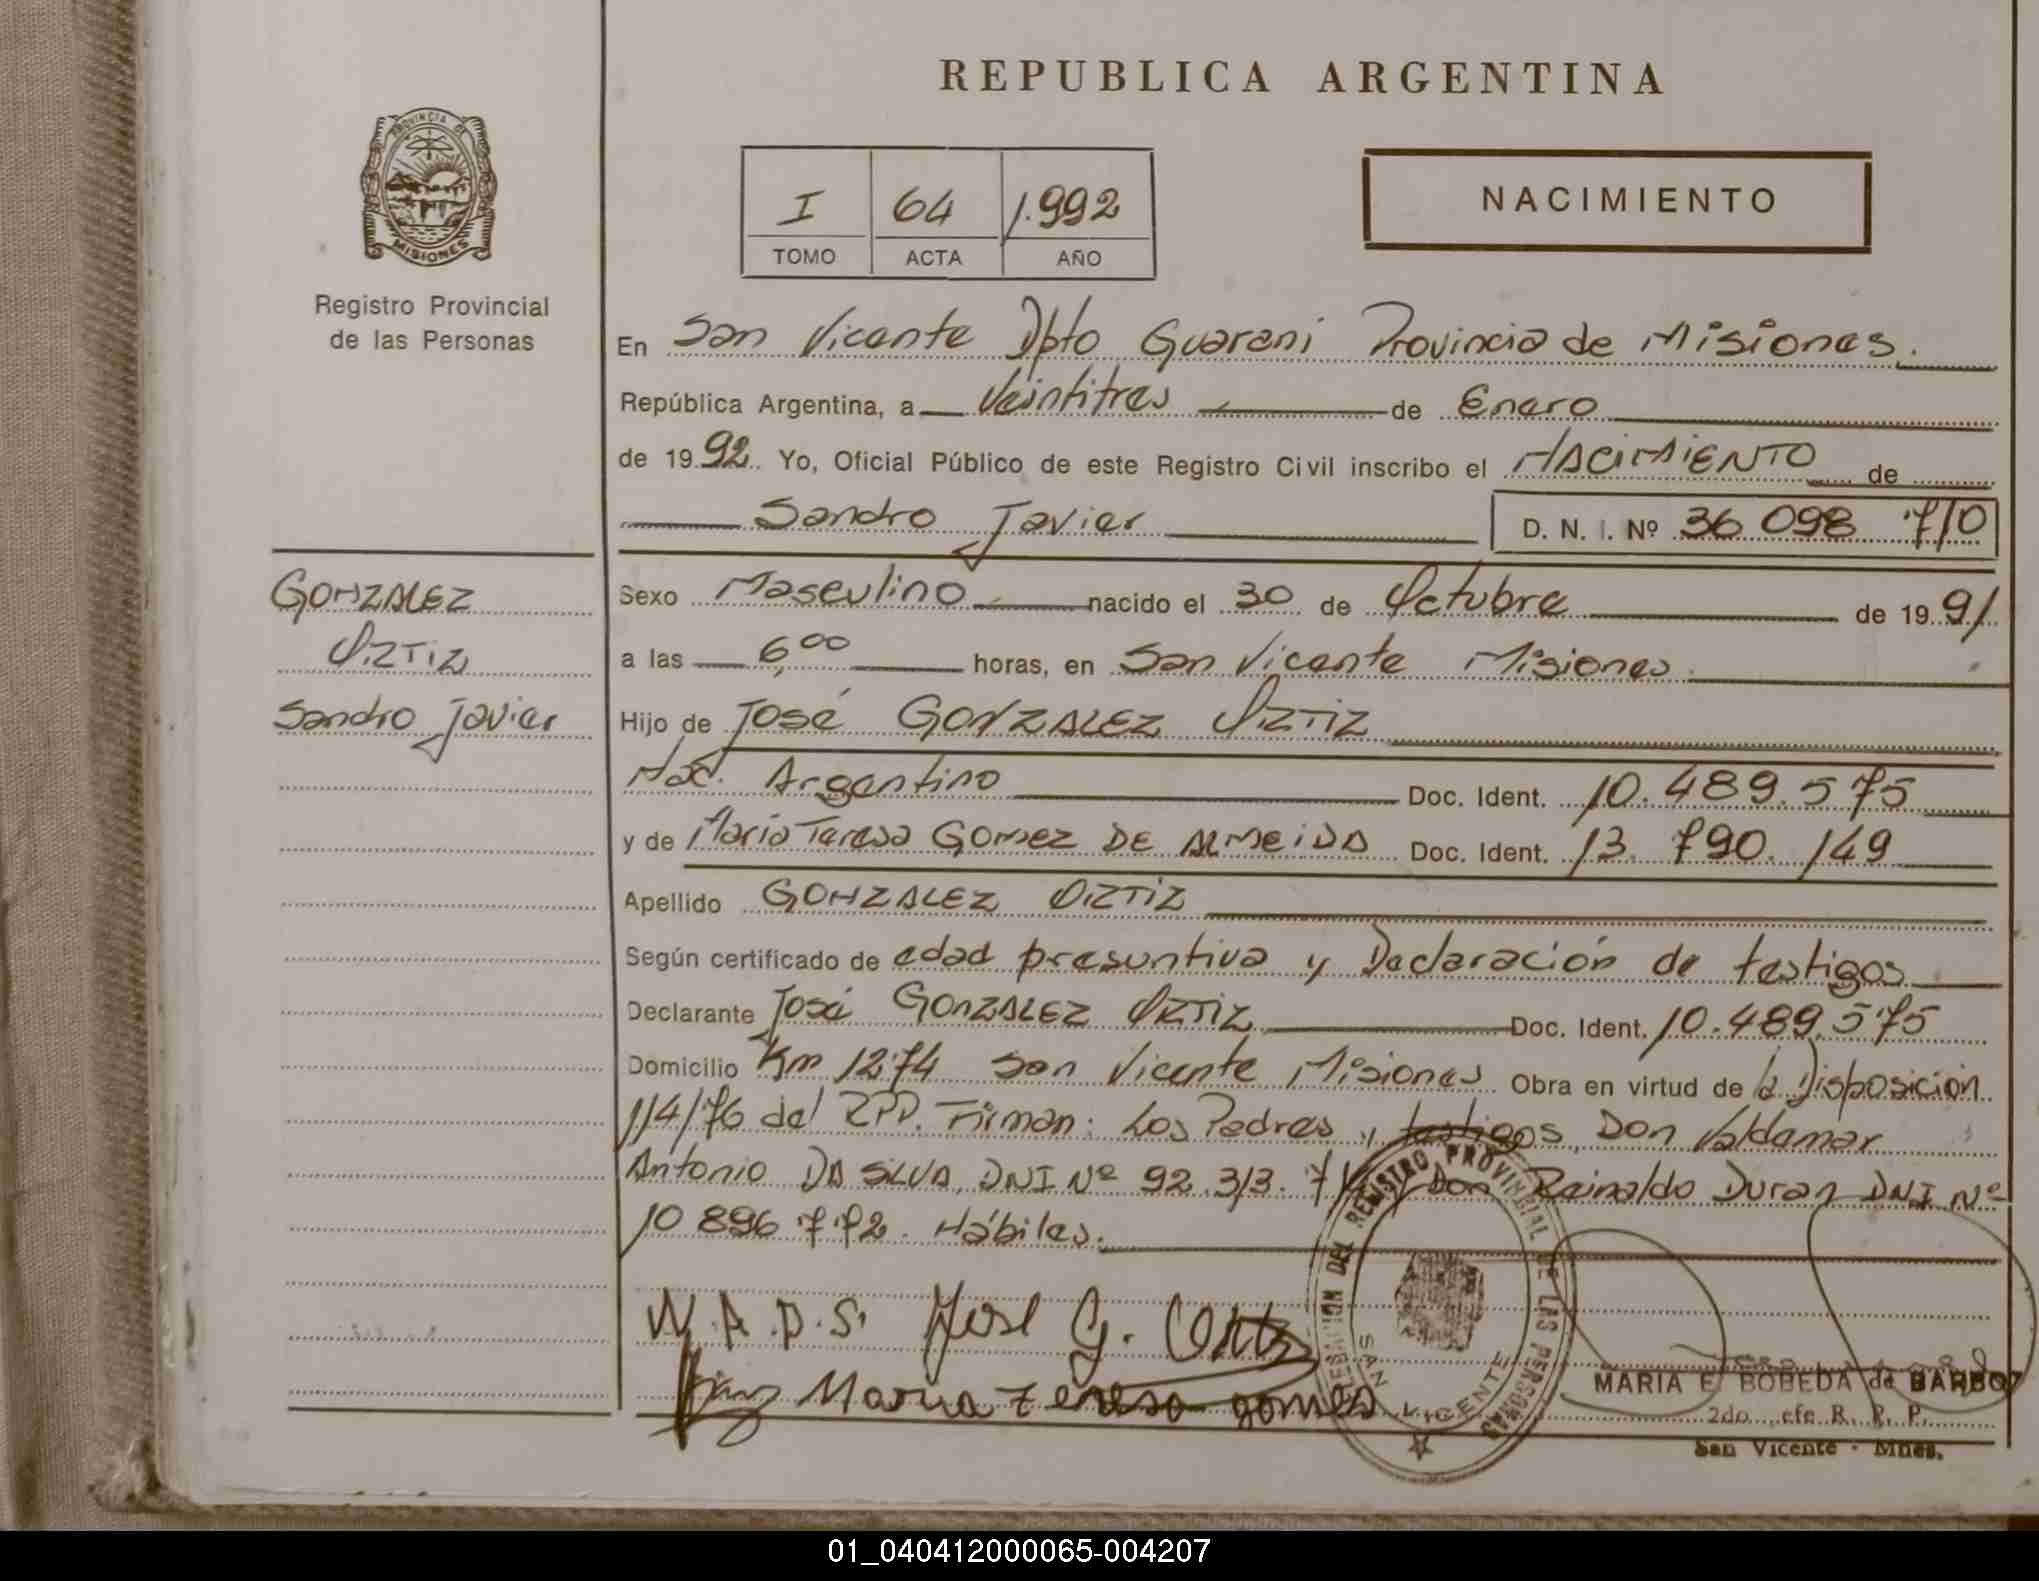 REPUBLICA ARGENTINA
PROVINCIA DE
MISIONES
Registro Provincial
de las Personas
I 64 1.992
TOMO ACTA AÑO
NACIMIENTO
En San Vicente Dpto Guarani Provincia de Misiones.
República Argentina, a Veintitres de Enero
de 1992. Yo, Oficial Público de este Registro Civil inscribo el NACIMIENTO de
Sandro Javier D. N. I. Nº 36 098 710
GONZALEZ
ORTIZ
Sandro Javier
Sexo Masculino nacido el 30 de Octubre de 1991
a las 6,00 horas, en San Vicente Misiones.
Hijo de José GONZALEZ ORTIZ
Nac. Argentino Doc. Ident. 10.489.575
y de María Teresa GOMEZ DE ALMEIDA Doc. Ident. 13.790.149
Apellido GONZALEZ ORTIZ
Según certificado de edad presuntiva y Declaración de testigos
Declarante José GONZALEZ ORTIZ Doc. Ident. 10.489.575
Domicilio Km 1274 San Vicente Misiones Obra en virtud de la Disposición
114/76 del RPP. Firman: Los Padres y testigos, Don Valdemar
Antonio DA SILVA, DNI Nº 92.313. Don Reinaldo Duran DNI Nº
10 896 772. Hábiles.
W.A.D.S. José G. Ortiz
Maria Tereso gomes
DELEGACION DEL REGISTRO PROVINCIAL DE LAS PERSONAS
SAN VICENTE
MARIA E. BOBEDA de BARBOZ
2do. Jefe R. P. P.
San Vicente - Mnes.
01_040412000065-004207